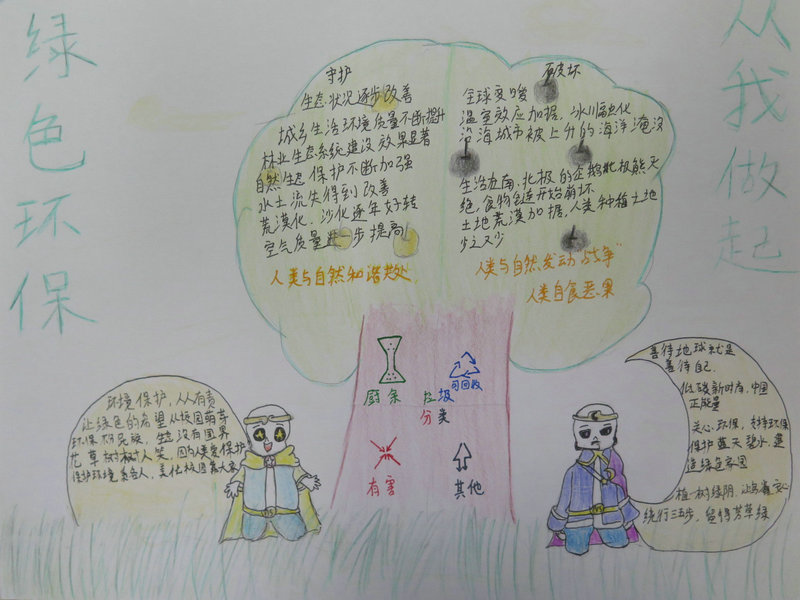 绿色环保
从我做起
守护
生态状况逐步改善
城乡生活环境质量不断提升
林业生态系统建设效果显著
自然生态保护不断加强
水土流失得到改善
荒漠化、沙化逐年好转
空气质量进一步提高
人类与自然和谐共处
破坏
全球变暖
温室效应加据，冰川融化
沿海城市被上升的海洋淹没
生活在南、北极的企鹅北极熊灭
绝，食物链开始崩坏
土地荒漠加据，人类种植土地
少之又少
人类与自然发动"战争"
人类自食恶果
厨余
可回收
垃圾
分类
有害
其他
环境保护，人人有责
让绿色的希望从校园萌芽
环保不分民族，生没有国界
花草树树人笑，因为人类爱保护
保护环境系会人，美化校园靠大家
善待地球就是
善待自己
低碳新时有，中国
正能量
关心环保，支持环保
保护蓝天碧水，建
造绿色家园
植一树绿阴，让鸟雀安心
绕行三五步，留得芳草绿